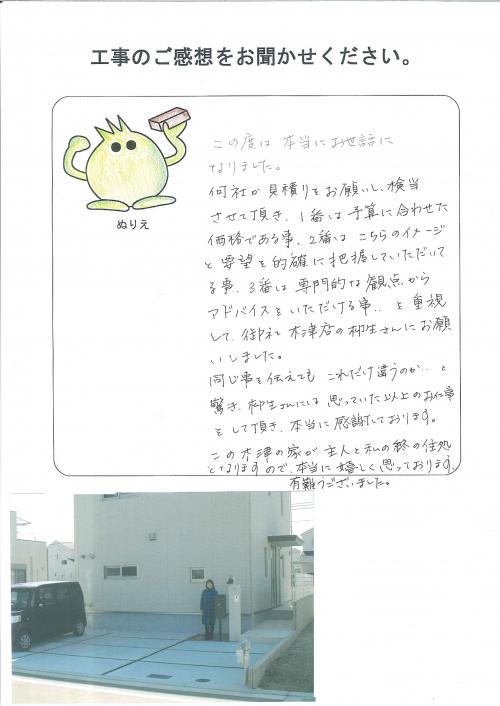 工事のご感想をお聞かせください。
ぬりえ
この度は 本当にお世話に
なりました。
何社か見積りをお願いし、検当
させて頂き、1番は予算に合わせた
価格である事、2番は こちらのイメージ
と要望を的確に把握していただいて
る事、3番は 専門的な観点から
アドバイスをいただける事‥ を重視
して、御社 木津店の柳生さんにお願
いしました。
同じ事を伝えても これだけ違うのか‥と
驚き、柳生さんには 思っていた以上のお仕事
をして頂き、本当に 感謝しております。
この木津の家が 主人と私の終の住処
となりますので、本当に 嬉しく思っております。
有難うございました。